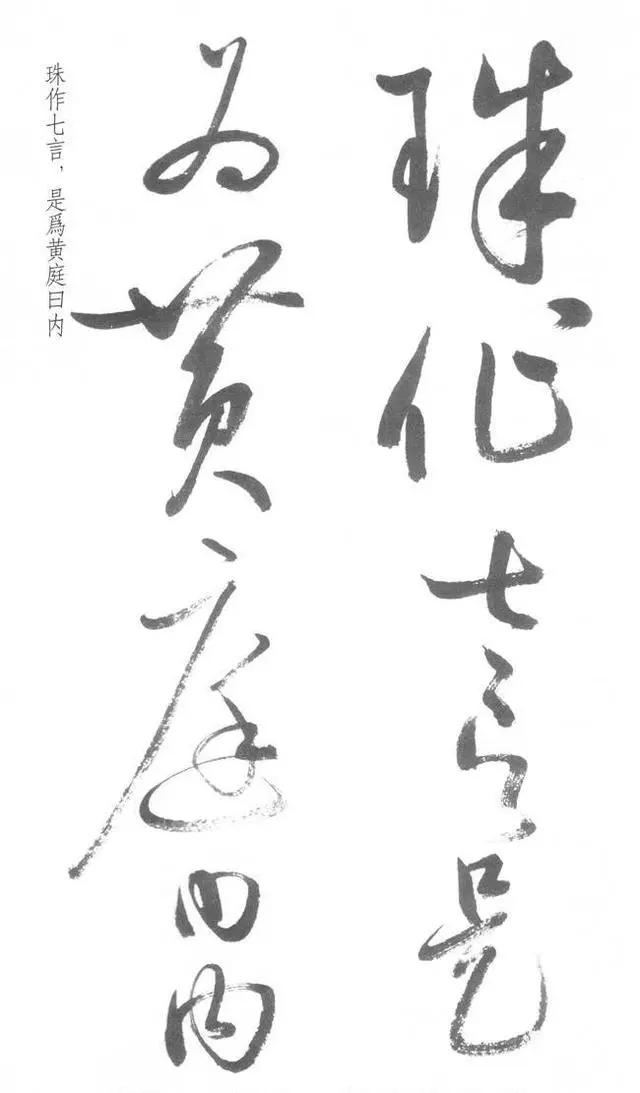 珠作七言是
为黄庭曰内
珠作七言，是爲黄庭曰内